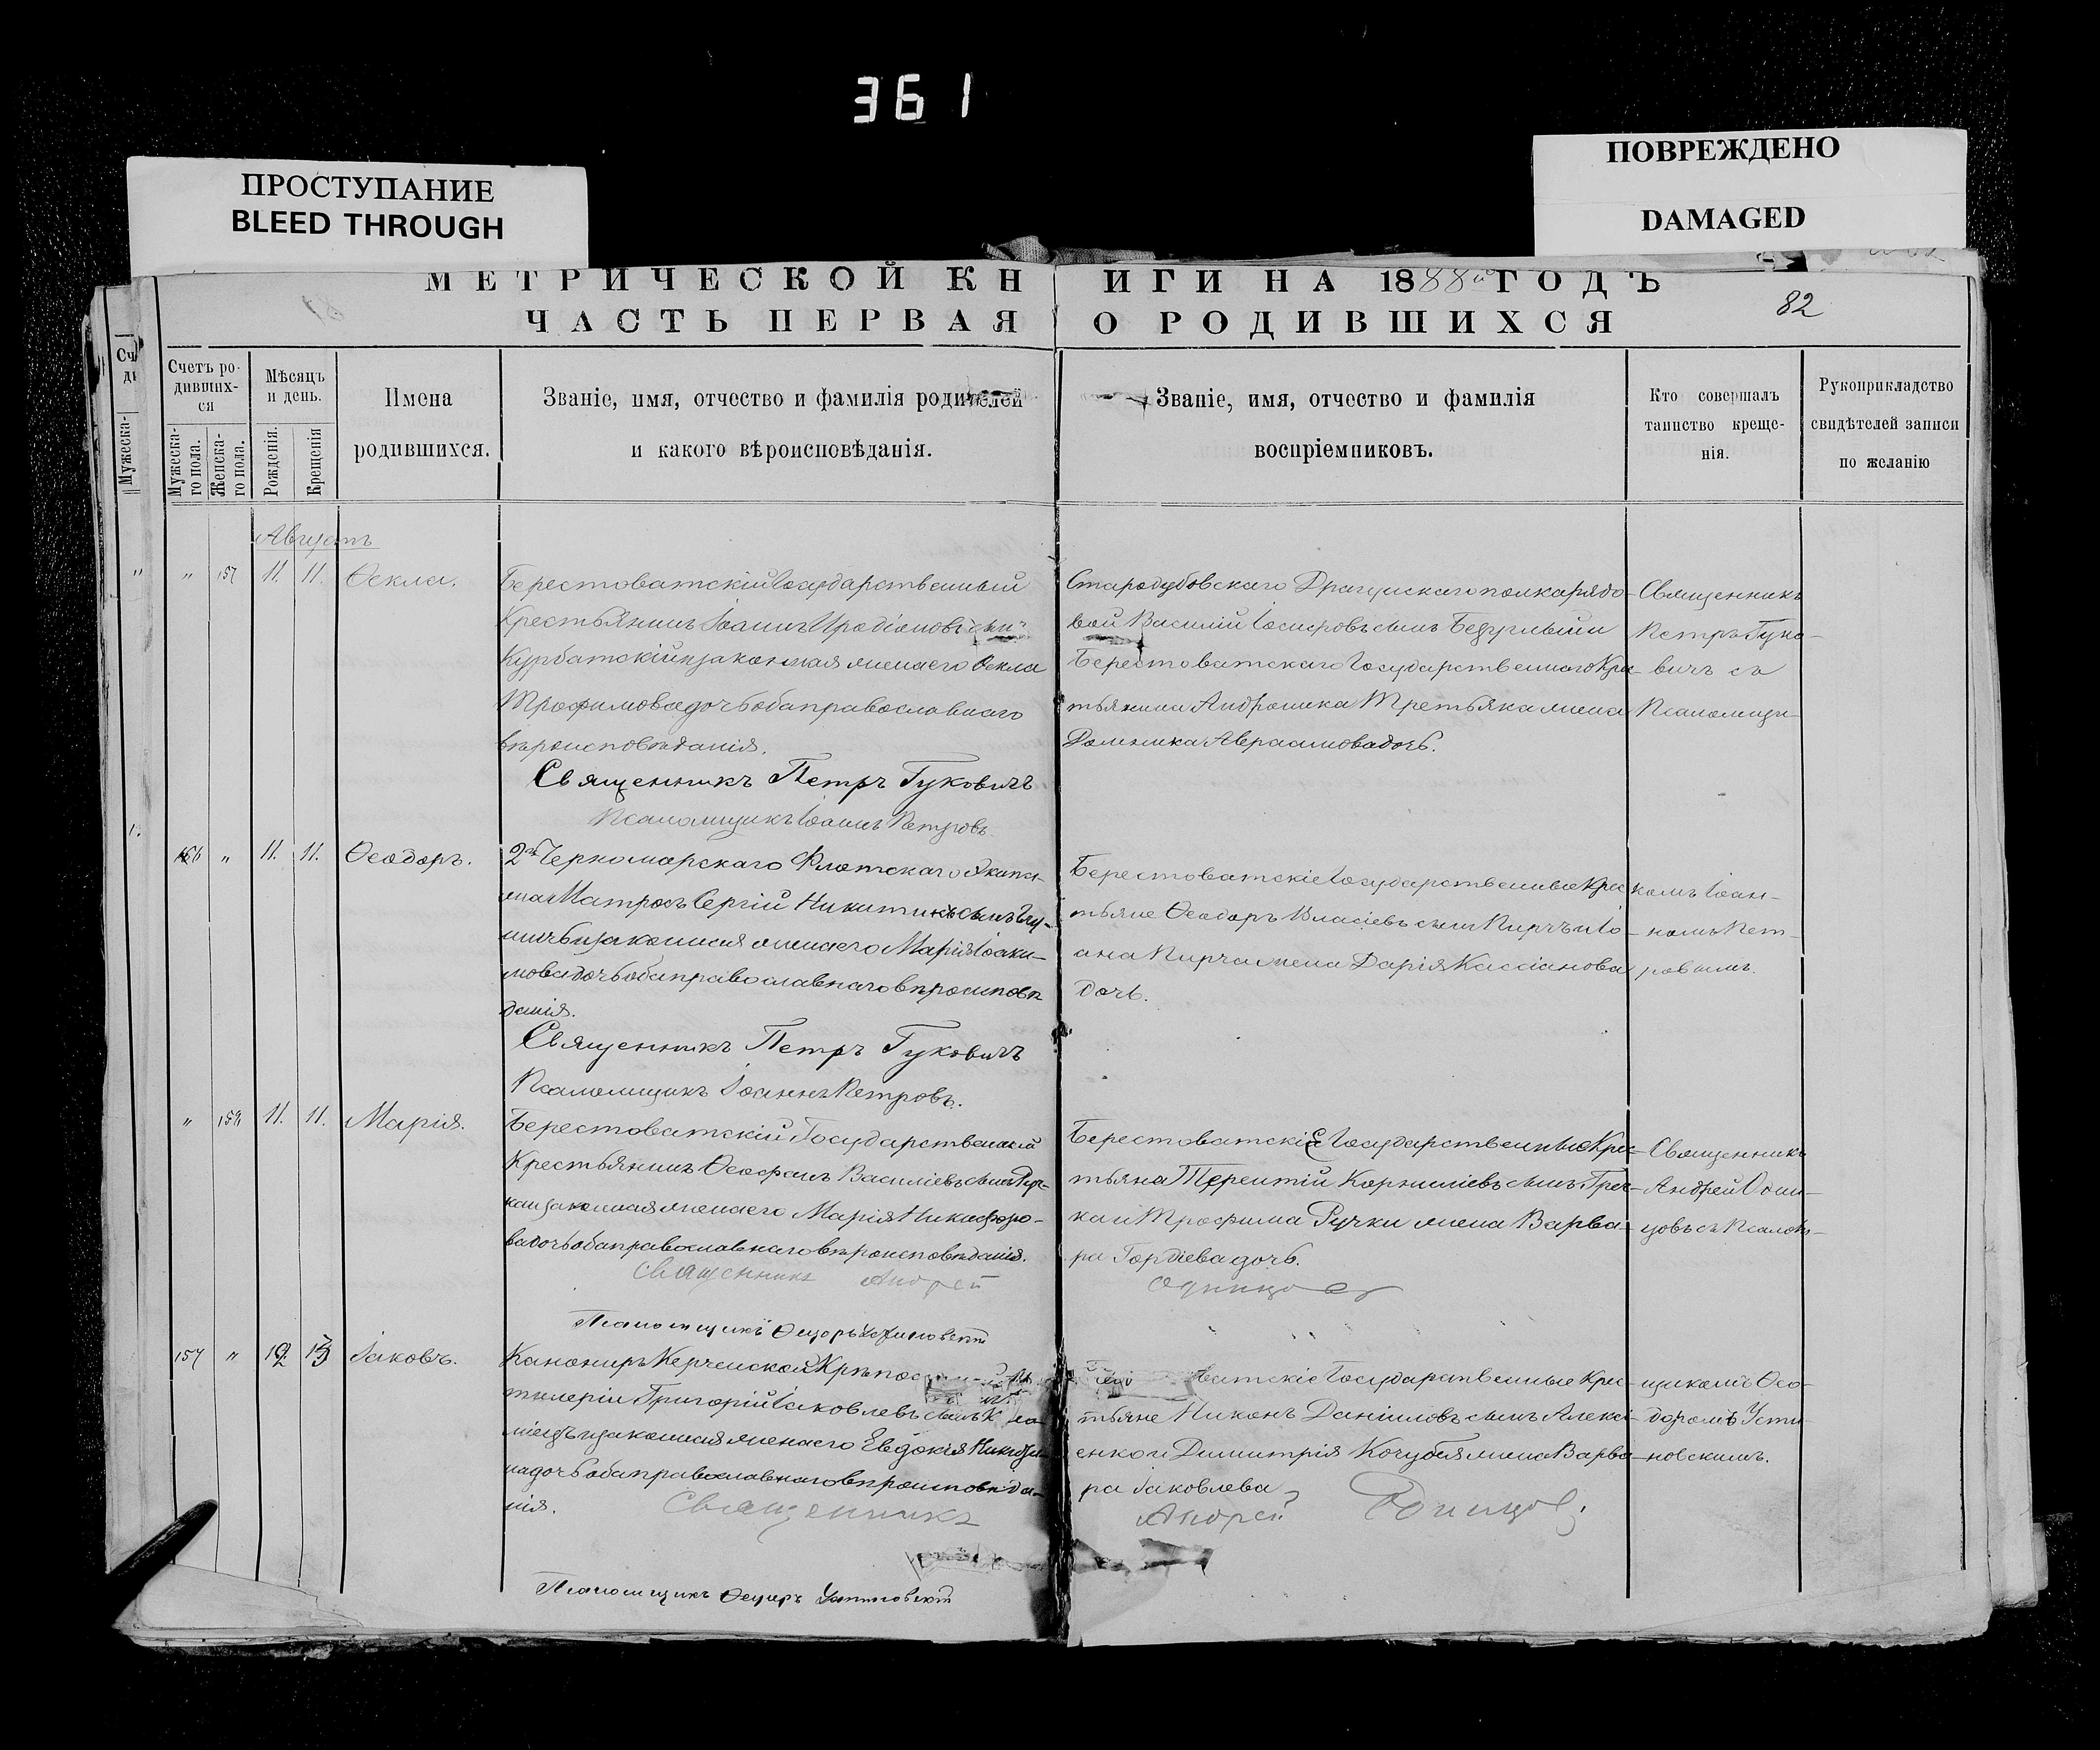 361
ПРОСТУПАНИЕ
BLEED THROUGH
ПОВРЕЖДЕНО
DAMAGED
МЕТРИЧЕСКОЙ КНИГИ НА 1888й ГОДЪ
ЧАСТЬ ПЕРВАЯ О РОДИВШИХСЯ
82
Счетъ ро-
дивших-
ся
Мужеска-
го пола.
Женска-
го пола.
Мѣсяцъ
и день.
Рожденія.
Крещенія
Имена
родившихся.
Званіе, имя, отчество и фамилія родителей
и какого вѣроисповѣданія.
Званіе, имя, отчество и фамилія
воспріемниковъ.
Кто совершалъ
таинство креще-
нія.
Рукоприкладство
свидѣтелей записи
по желанію
Августъ
" 157 11. 11. Ѳекла.
Берестоватскій Государственный
Крестьянинъ Іоаннъ Иродіоновъ сын
Курбатскій и законная жена его Ѳекла
Трофимова дочь оба православнаго
вѣроисповѣданія.
Священникъ Петръ Гуковичъ
Псаломщикъ Іоаннъ Петровъ
Стародубовскаго Драгунскаго полка рядо-
вой Василій Іосифовъ сынъ
Берестоватскаго Государственнаго Крес
тьянина Андроника Третьяка жена
Домника Авраамова дочь.
Священникъ
Петръ Гуко-
вичъ съ
Псаломщи-
156 " 11. 11. Ѳеодоръ.
2го Черноморскаго Флотскаго Экипа-
жа Матросъ Сергій Никитинъ сынъ
и законная жена его Марія Іоаки-
мова дочь оба православнаго вѣроисповѣ
данія.
Священникъ Петръ Гуковичъ
Псаломщикъ Іоаннъ Петровъ.
Берестоватскіе Государственные Крес
тьяне Ѳеодоръ Власіевъ сынъ Пирчъ и Іо-
ана Пирча жена Дарія Кассіанова
дочь.
комъ Іоан-
номъ Пет-
ровымъ.
" 158 11. 11. Марія.
Берестоватскій Государственный
Крестьянинъ Ѳеофанъ Василіевъ сынъ Руч-
ка и законная жена его Марія Никифоро-
ва дочь оба православнаго вѣроисповѣданія.
Священникъ Андрей Одинцовъ
Псаломщикъ Ѳеодоръ Устиновскій
Берестоватскіе Государственные Крес-
тьяна Терентій Корниліевъ сынъ Греч-
ка и Трофима Ручки жена Варва-
ра Гордіева дочь.
Священникъ
Андрей Один-
цовъ съ Псалом-
157 " 12 13 Іаковъ.
Канониръ Керченской Крѣпос
тилеріи Григорій Іаковлевъ сынъ
и законная жена его Евдокія
на дочь оба православнаго вѣроисповѣда-
нія.
Священникъ Андрей Одинцовъ
Псаломщикъ Ѳеодоръ Устиновскій
ватскіе Государственные Крес-
тьяне Никонъ Даніиловъ сынъ Алексі-
енко и Димитрія Кочубея жена Варва-
ра Іаковлева
щикомъ Ѳео-
доромъ Усти-
новскимъ.